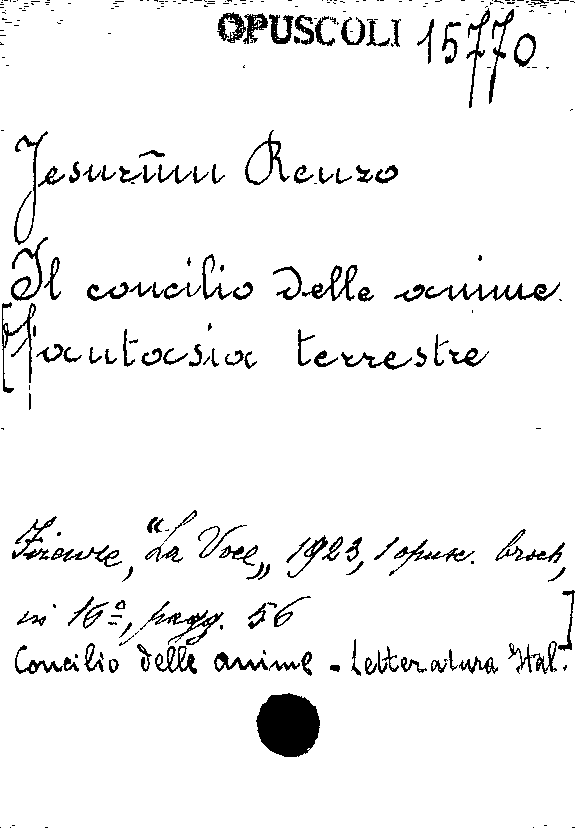 OPUSCOLI 15770
Jesurũm Renzo
Il concilio delle anime.
[Fantasia terrestre
Firenze, "La Voce,, 1923, 1 opusc. broch,
in 16º, pagg. 56]
Concilio delle anime - Letteratura Ital.